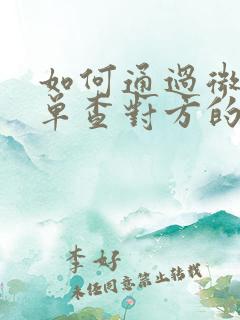 如何通過微
單查對方的
李好
未经同意禁止转载